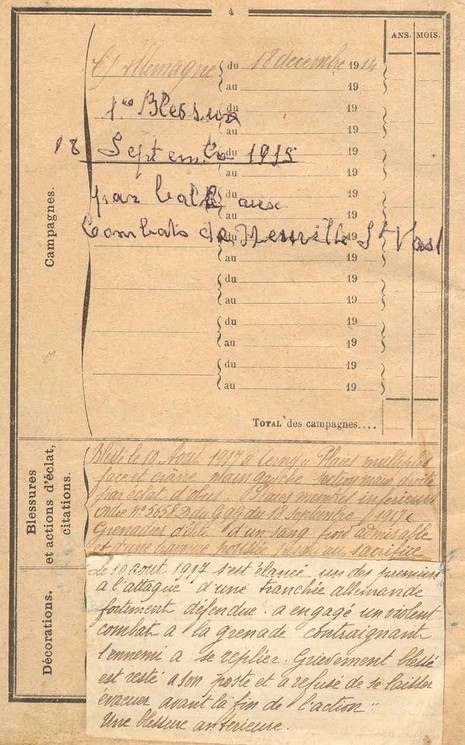 4
ANS. MOIS.
Campagnes.
C/ Allemagne du 18 décembre 1914
au 19
1re Blessure
18 Septembre 1915
par balle aux
Combats de Neuville St Vast
du 19
au 19
du 19
au 19
du 19
au 19
TOTAL des campagnes....
Blessures
et actions d'éclat,
citations.
Blessé le 10 Août 1917 à Cerny Plaies multiples
face et crâne main gauche moignon main droite
par éclat d'obus. Plaies membres inférieurs
du 18 Septembre 1917
Grenadier d'élite d'un sang froid admirable
et d'une bravoure poussée jusqu'au sacrifice
Décorations.
Le 10 aout 1917 s'est élancé un des premiers
a l'attaque d'une tranchée allemande
fortement defendue. a engagé un violent
combat a la grenade contraignant
l'ennemi a se replier. Grievement blessé
est resté a son poste et a refusé de se laisser
évacuer avant la fin de l'action :
Une blessure anterieure.